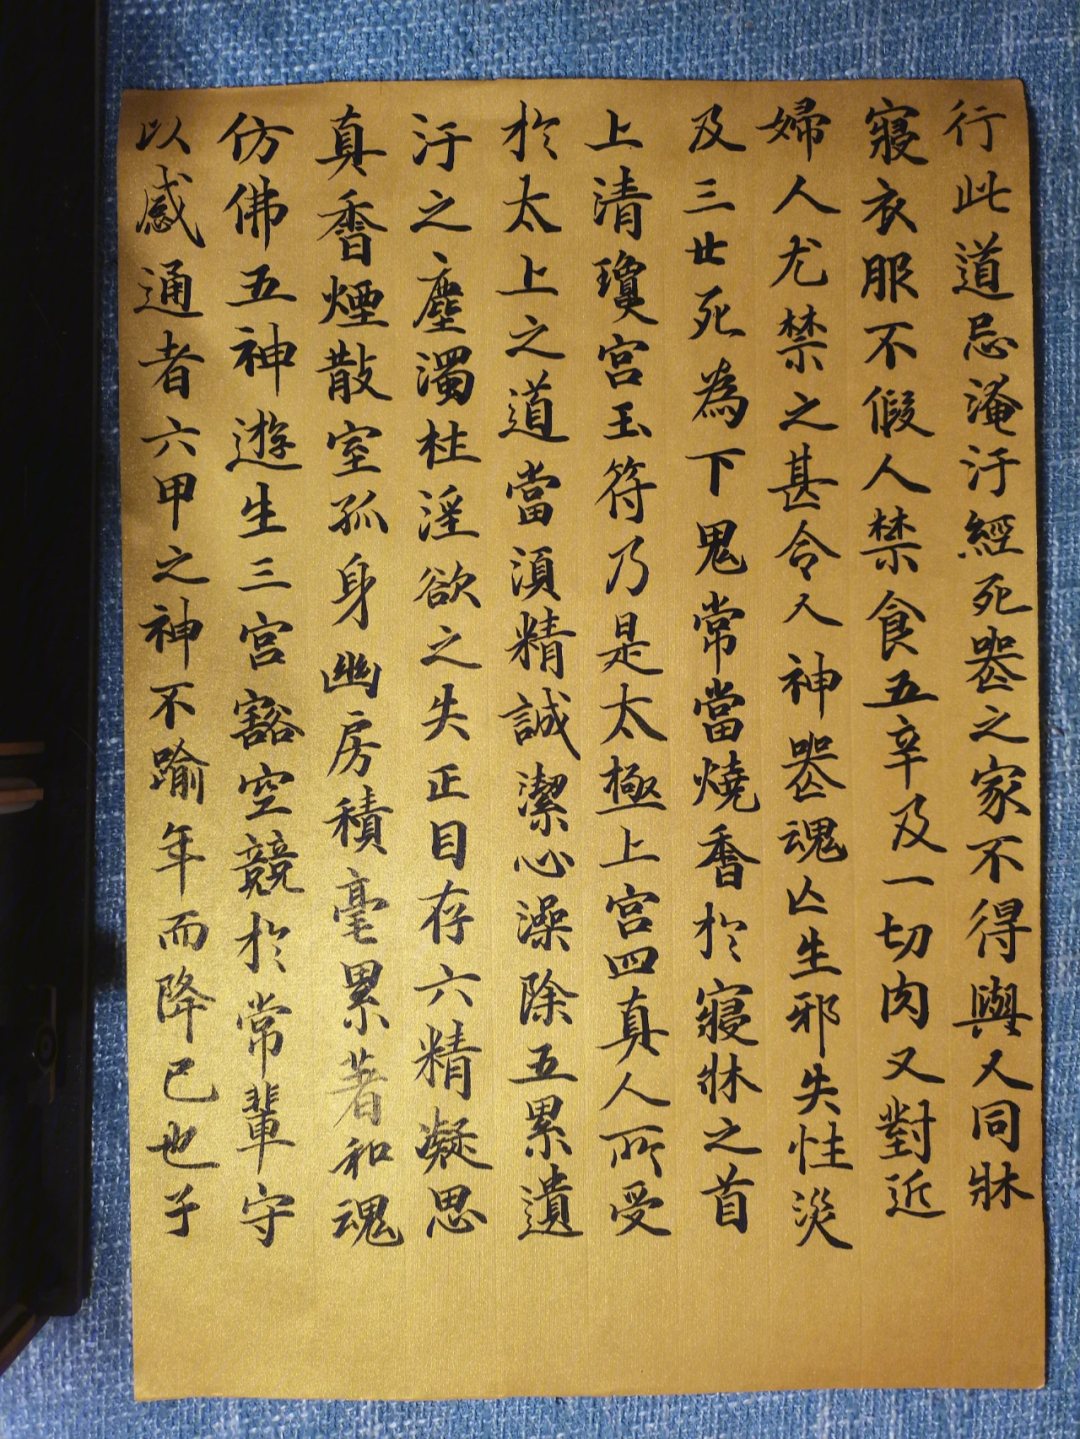 行此道忌淹汙經死喪之家不得與人同牀
寢衣服不假人禁食五辛及一切肉又對近
婦人尤禁之甚令人神喪魂亡生邪失性災
及三世死為下鬼常當燒香於寢牀之首
上清瓊宮玉符乃是太極上宮四真人所受
於太上之道當須精誠潔心澡除五累遺
汙之塵濁杜淫欲之失正目存六精凝思
真香煙散室孤身幽房積毫累著和魂
仿佛五神遊生三宮豁空競於常輩守
以感通者六甲之神不踰年而降已也子